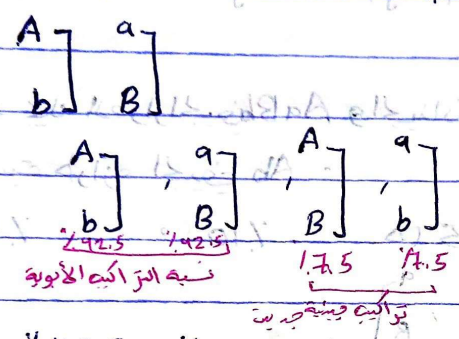 A a
b B
A , a , A , a
b B B b
%42.5 %42.5 %7.5 %7.5
نسبة التراكيب الأبوية
تراكيب جينية جديدة